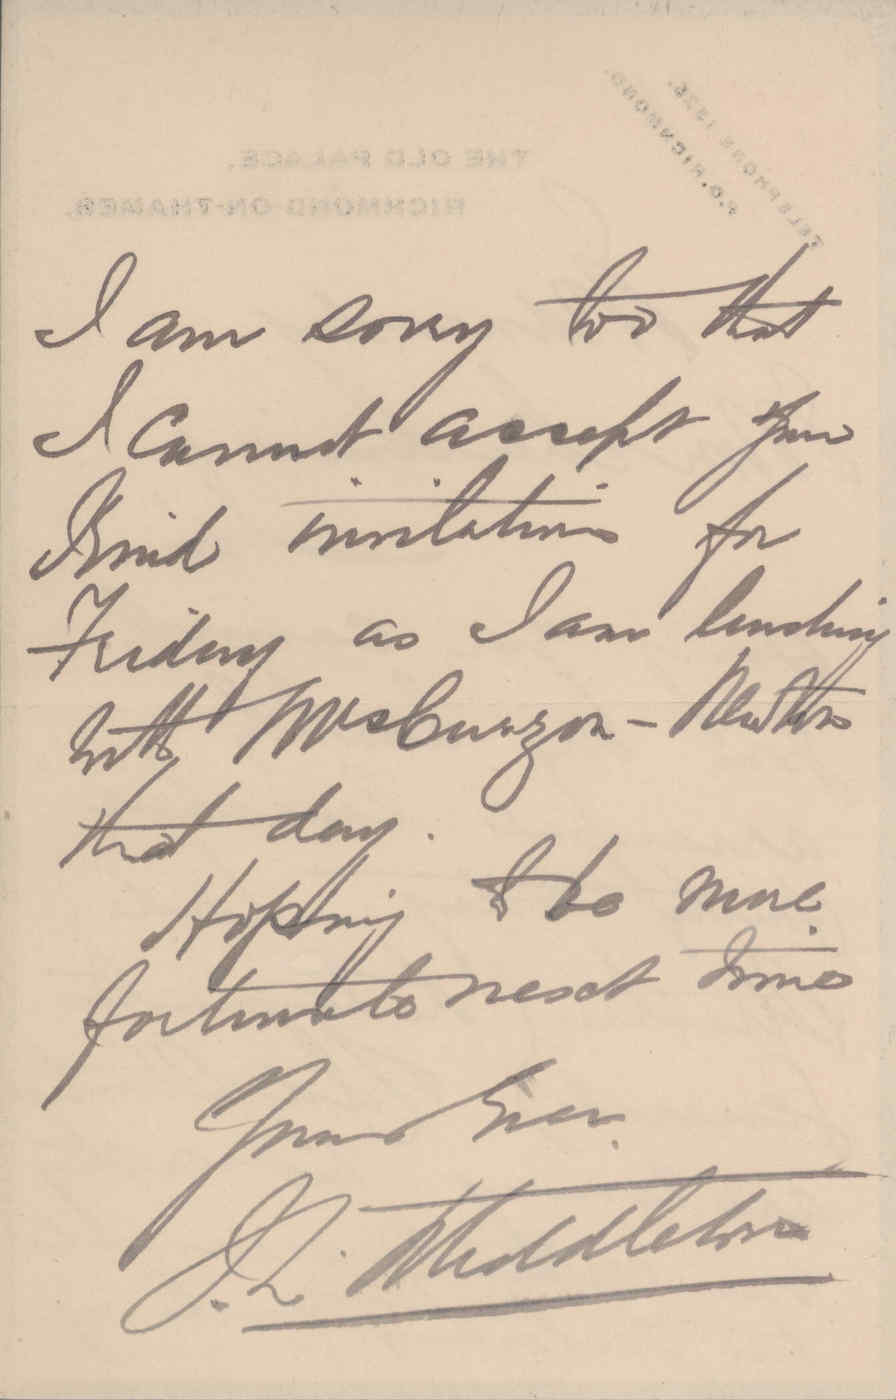 TELEPHONE 1325.
P.O. RICHMOND.
THE OLD PALACE,
RICHMOND-ON-THAMES.
I am sorry too that
I cannot accept your
kind invitation for
Friday as I am lunching
with Mrs Curzon-Newton
that day.
Hoping to be more
fortunate next time
Yours Ever
J. L. Middleton